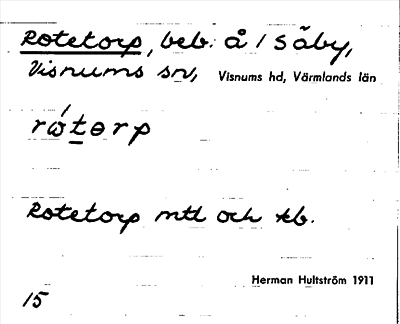 Rotetorp, beb. å 1 Säby,
Visnums sn, Visnums hd, Värmlands län
rώtɵrp
Rotetorp mtl och kb.
Herman Hultström 1911
15